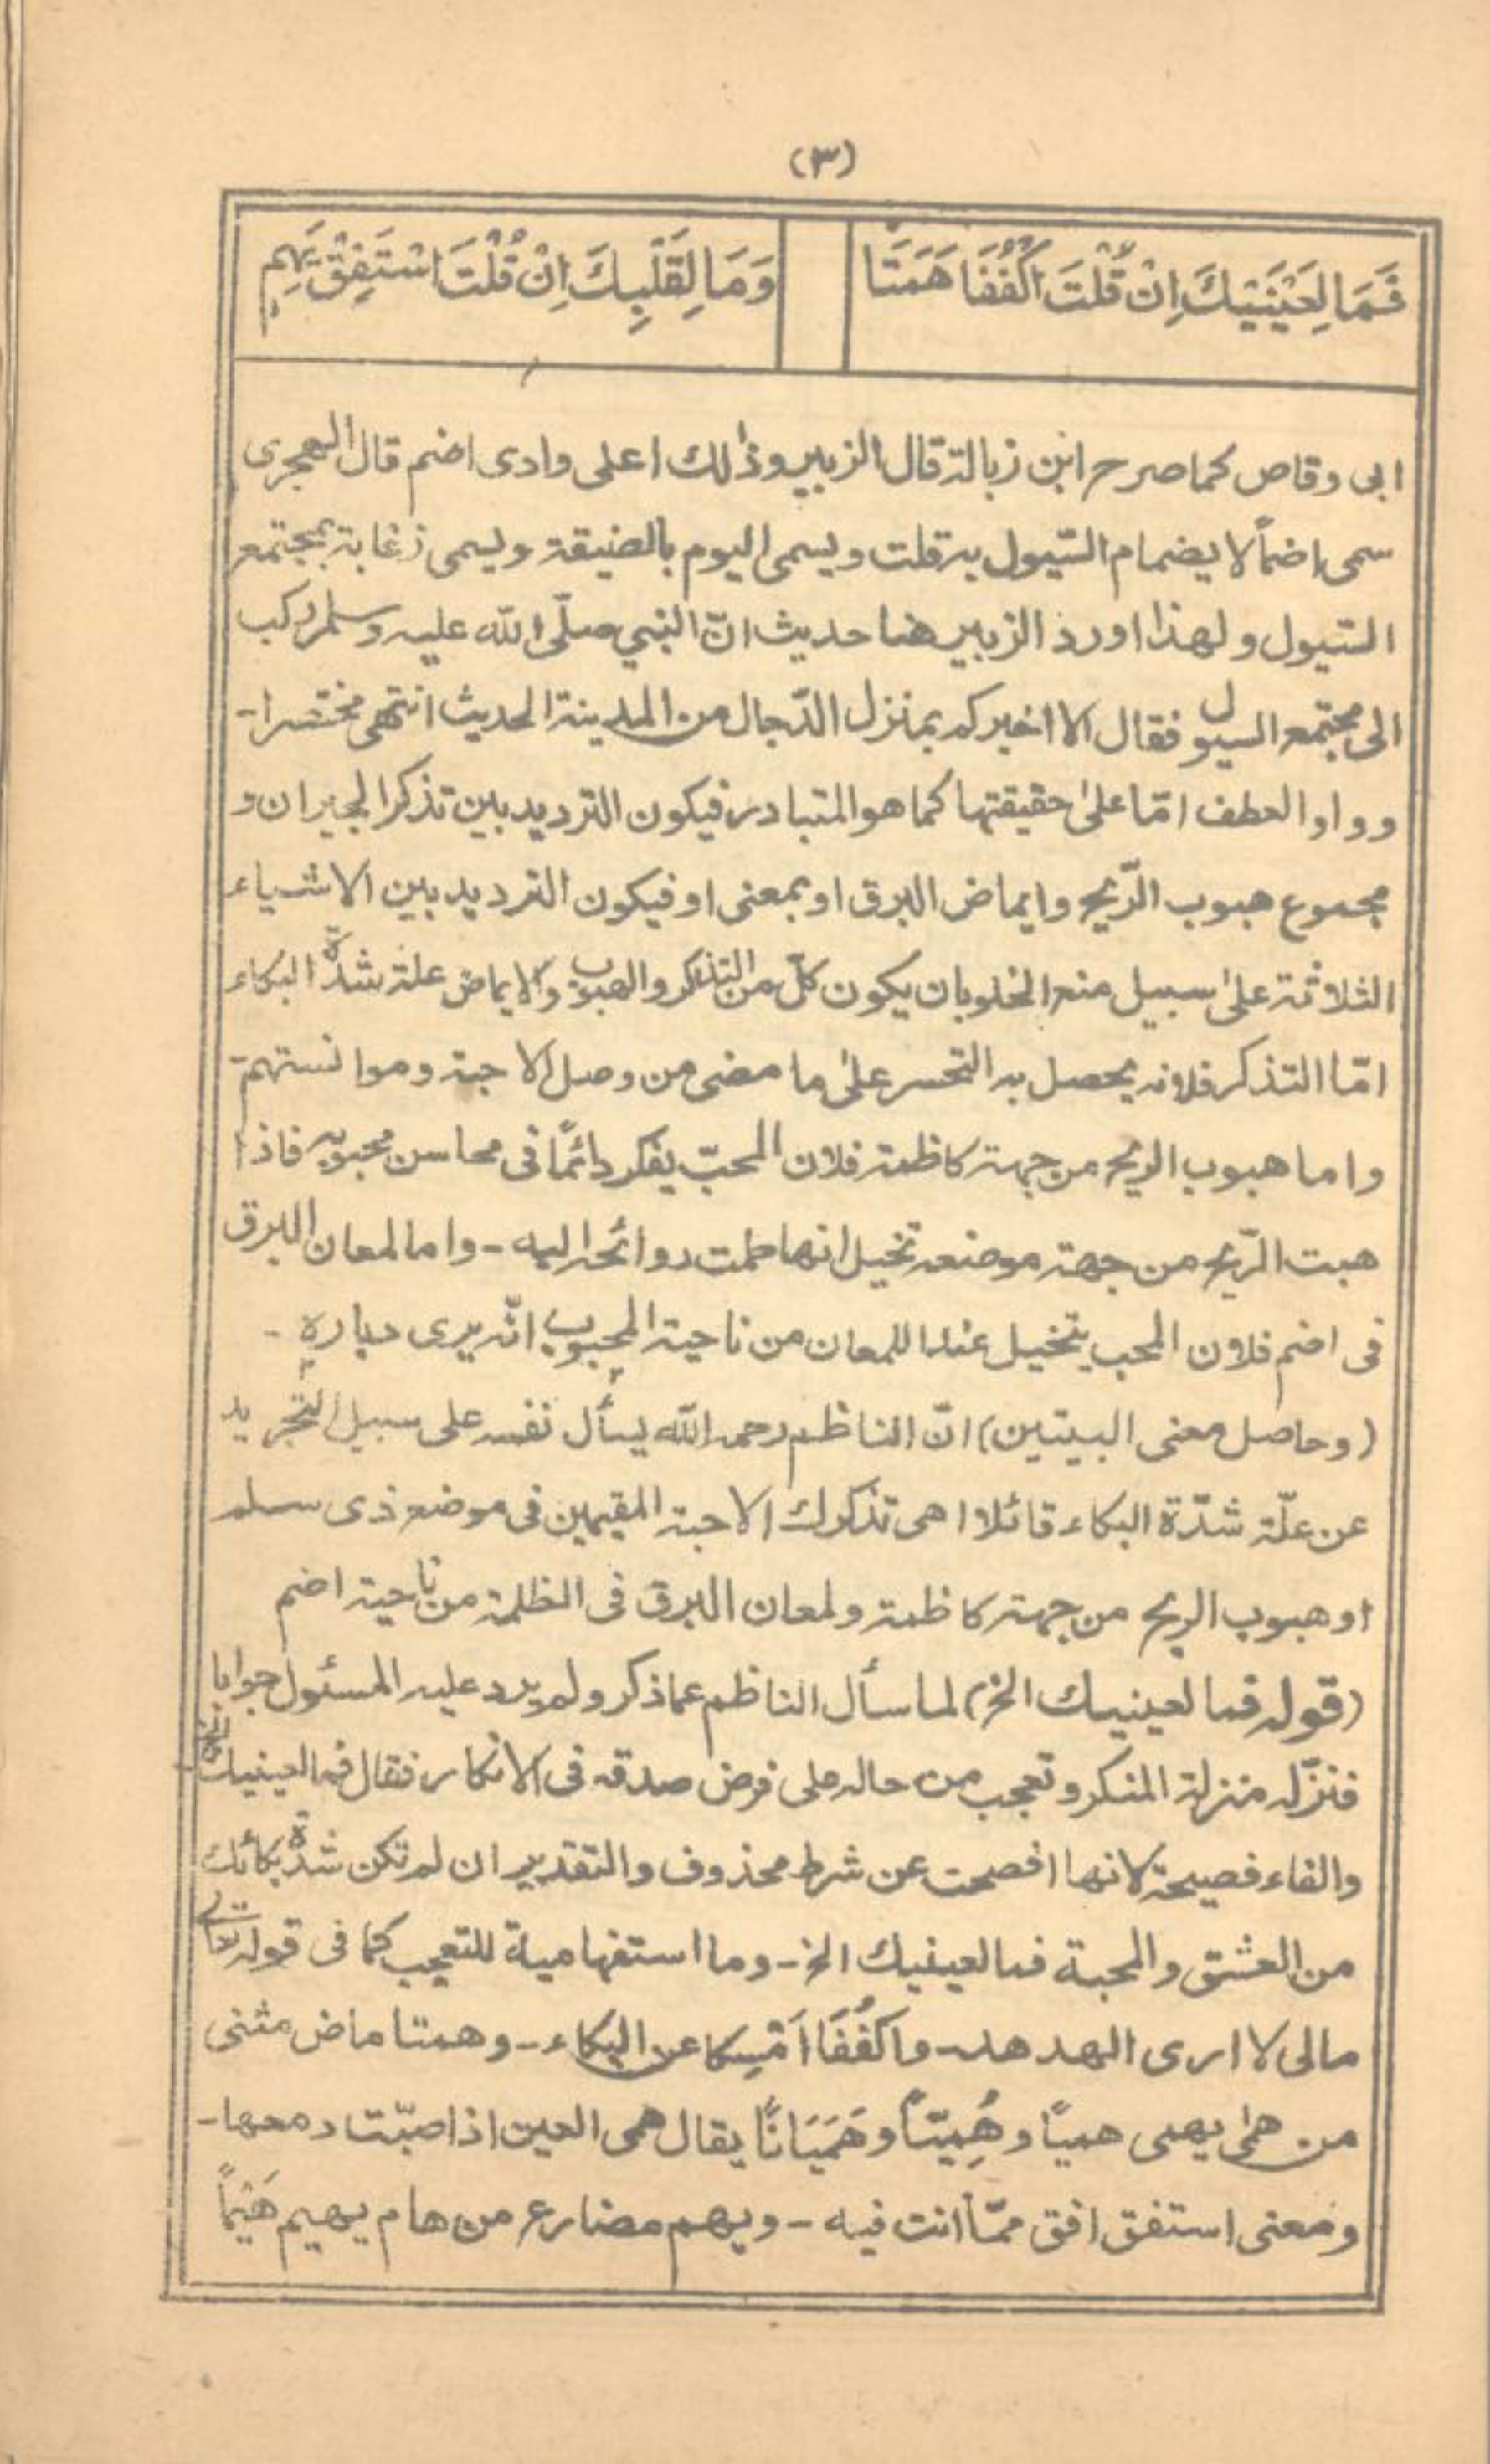 (٣)
فَمَا لِعَيْنَيْكَ اِنْ قُلْتَ اكْفُفَا هَمَتَا
وَمَا لِقَلْبِكَ اِنْ قُلْتَ اسْتَفِقْ يَهِمِ
ابى وقاص كما صرح ابن زبالة قال الزبير وذٰلك اعلى وادى اضم قال الهجرى
سمى اضماً لا يضمام السّيول به قلت ويسمى اليوم بالضيقة ويسمى زغابة بمجتمع
السّيول ولهذا اورد الزبير هنا حديث انّ النبي صلّى الله عليه وسلم ركب
الى مجتمع السيول فقال الا اخبركم بمنزل الدّجال من المدينة الحديث انتهى مختصرا-
وواو العطف امّا علىٰ حقيقتها كما هو المتبادر فيكون الترديد بين تذكر الجيران و
مجموع هبوب الرّيح وايماض البرق او بمعنى او فيكون الترديد بين الاشياء
الثلاثة علىٰ سبيل منع الخلو بان يكون كلّ من التذكر والهبوب والايماض علة شدّة البكاء
امّا التذكر فلانه يحصل به التحسر علىٰ ما مضى من وصل الاحبة وموانستهم-
واما هبوب الريح من جهة كاظمة فلان المحبّ يفكر دائمًا فى محاسن محبوبه فاذا
هبت الرّيح من جهة موضعه تخيل انها حملت روائحه اليه - واما لمعان البرق
فى اضم فلان المحب يتخيل عند اللمعان من ناحية المحبوب انّه يرى دياره -
(وحاصل معنى البيتين) انّ الناظم رحمه الله يسأل نفسه على سبيل التجريد
عن علّة شدّة البكاء قائلا اهى تذكرك الاحبة المقيمين فى موضع ذى سلم
او هبوب الريح من جهة كاظمة ولمعان البرق فى الظلمة من ناحية اضم
(قوله فما لعينيك الخ) لما سأل الناظم عما ذكر ولم يرد عليه المسئول جوابا
فنزّله منزلة المنكر وتعجب من حاله على فرض صدقه فى الانكار فقال فما لعينيك الخ
والفاء فصيحة لانها افصحت عن شرط محذوف والتقدير ان لم تكن شدّة بكائك
من العشق والمحبة فما لعينيك الخ - وما استفهامية للتعجب كما فى قوله تعالى
مالى لا ارى الهدهد - واكْفُفَا اَمْسِكا عن البكاء - وهمتا ماض مثنى
من همٰى يهمى هميًا وهُمِيّاً وهَمَيَانًا يقال همى العين اذا صبّت دمعها-
ومعنى استفق افق ممّا انت فيه - ويهم مضارع من هام يهيم هَيْمًا